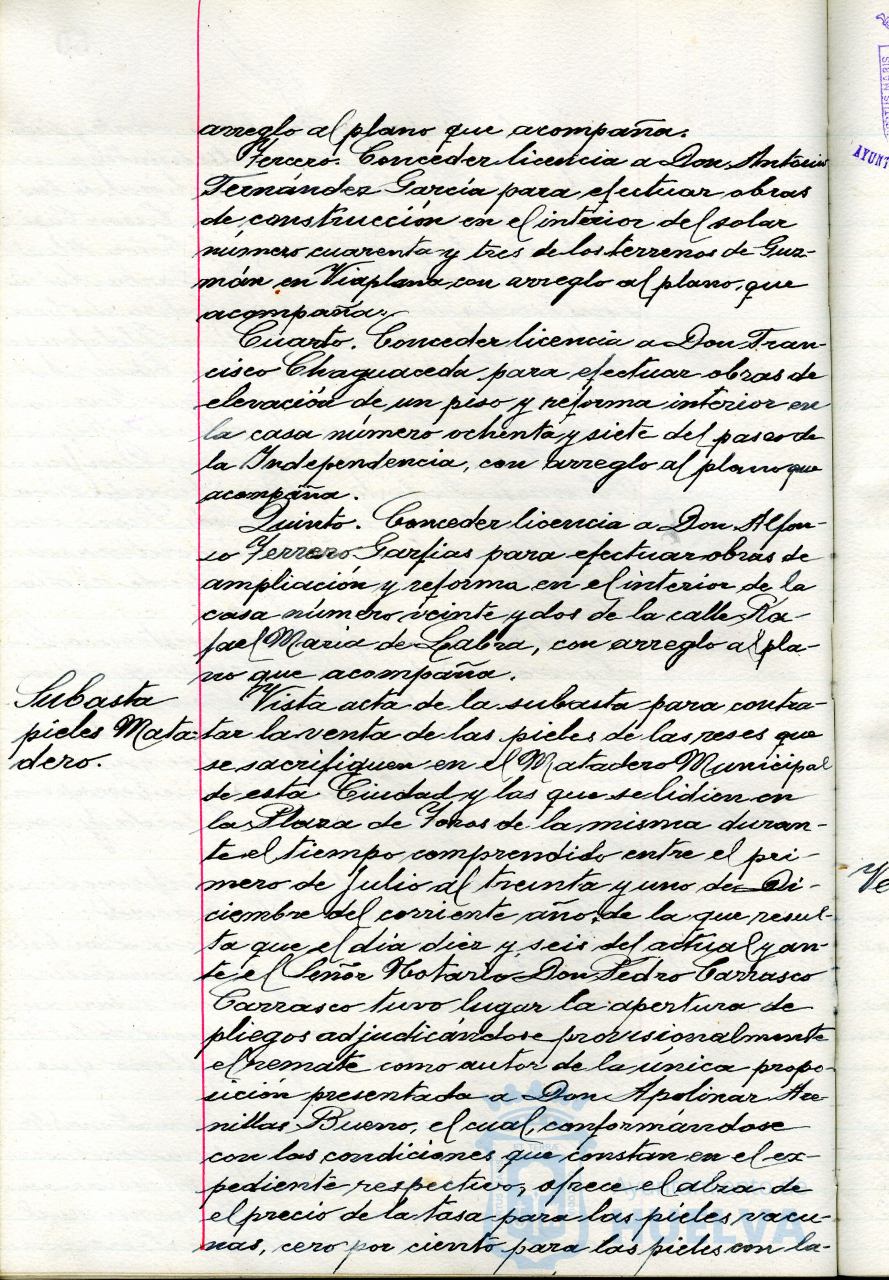 arreglo al plano que acompaña.
Tercero. Conceder licencia a Don Antonio
Fernández García para efectuar obras
de construcción en el interior del solar
número cuarenta y tres de los terrenos de Guz-
mán en Viaplana con arreglo al plano que
acompaña.
Cuarto. Conceder licencia a Don Fran-
cisco Chaguaceda para efectuar obras de
elevación de un piso y reforma interior en
la casa número ochenta y siete del paseo de
la Independencia, con arreglo al plano que
acompaña.
Quinto. Conceder licencia a Don Alfon-
so Ferrero Garfias para efectuar obras de
ampliación y reforma en el interior de la
casa número veinte y dos de la calle Ra-
fael Maria de Labra, con arreglo al pla-
no que acompaña.
Subasta
pieles Mata-
dero.
Vista acta de la subasta para contra-
tar la venta de las pieles de las reses que
se sacrifiquen en el Matadero Municipal
de esta Ciudad y las que se lidien en
la Plaza de Toros de la misma duran-
te el tiempo comprendido entre el pri-
mero de Julio al treinta y uno de Di-
ciembre del corriente año, de la que resul-
ta que el día diez y seis del actual y an-
te el Señor Notario Don Pedro Carrasco
Carrasco tuvo lugar la apertura de
pliegos adjudicándose provisionalmente
el remate como autor de la única propo-
sición presentada a Don Apolinar Are-
nillas Bueno, el cual, conformándose
con las condiciones que constan en el ex-
pediente respectivo, ofrece el alza de
el precio de la tasa para las pieles vacu-
nas, cero por ciento para las pieles con la-
Ayuntamiento de
HUELVA
AYUNT